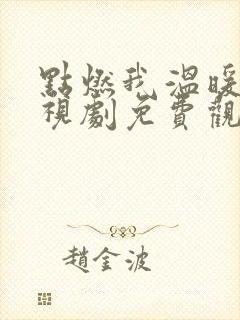 點燃我溫暖
視劇免費觀
趙金波